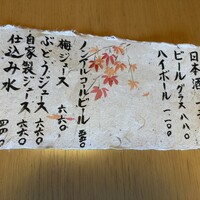 日本酒
ビール グラス 八八〇
ハイボール 一、一〇〇
ノンアルコールビール 五五〇
梅ジュース 六六〇
ぶどうジュース 六六〇
自家製ジュース 六六〇
仕込み水 四四〇